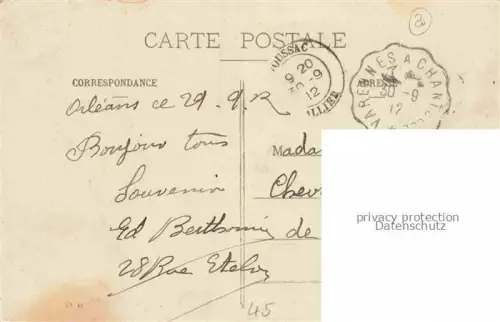 CARTE POSTALE
CORRESPONDANCE
ADRESSE
9 20
30-9
12
ALLIER
VARENNES A CHANT
30-9
12
Orléans ce 29-9-12
Bonjour tous
Souvenir
Ed
28 Rue
Mada
Chev
de
privacy protection
Datenschutz
45